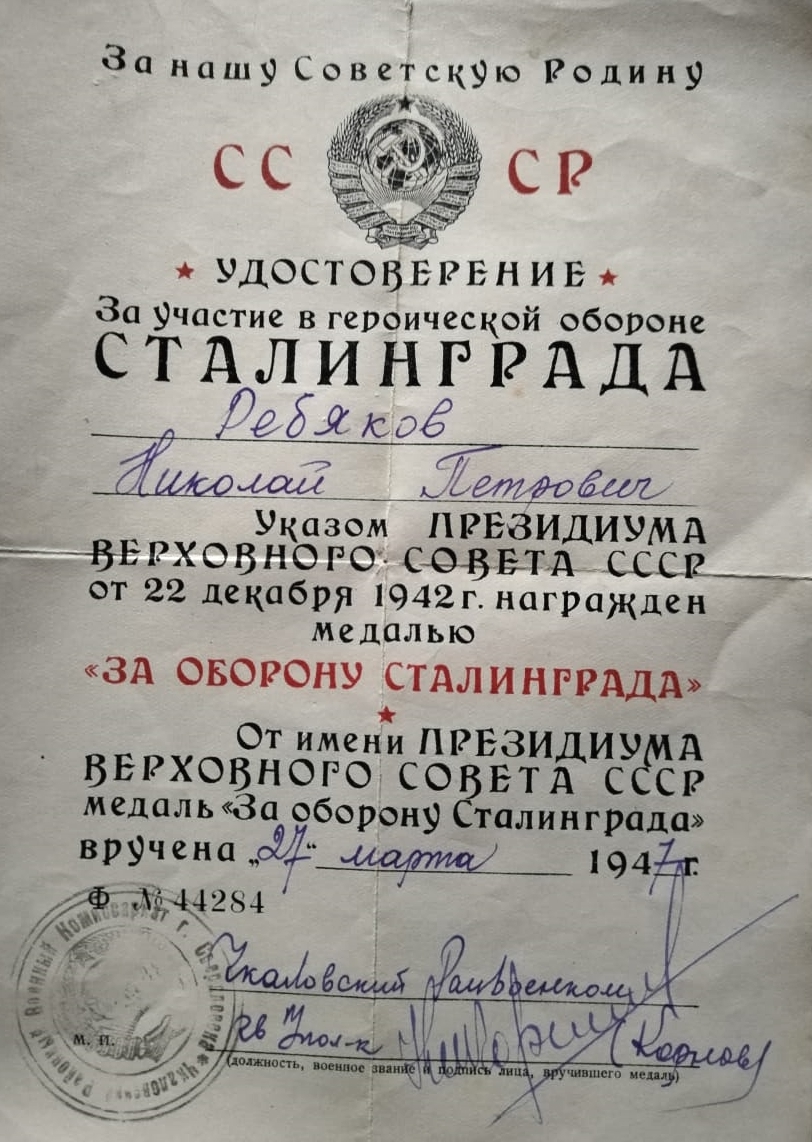 За нашу Советскую Родину
СССР
УДОСТОВЕРЕНИЕ
За участие в героической обороне
СТАЛИНГРАДА
Ребяков
Николай Петрович
Указом ПРЕЗИДИУМА
ВЕРХОВНОГО СОВЕТА СССР
от 22 декабря 1942 г. награжден
медалью
«ЗА ОБОРОНУ СТАЛИНГРАДА»
От имени ПРЕЗИДИУМА
ВЕРХОВНОГО СОВЕТА СССР
медаль «За оборону Сталинграда»
вручена „27“ марта 1947 г.
Ф № 44284
Чкаловский Райвоенком
(Карпов)
м. п.
(должность, военное звание и подпись лица, вручившего медаль)
Районный Военный Комиссариат г. Свердловска Чкаловский